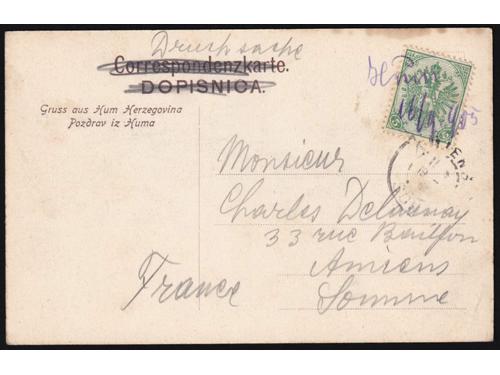 Drucksache
Correspondenzkarte.
DOPISNICA.
Gruss aus Hum Herzegovina
Pozdrav iz Huma
16/9 905
5 5
Monsieur
Charles Delaunay
33 rue
Amiens
France Somme